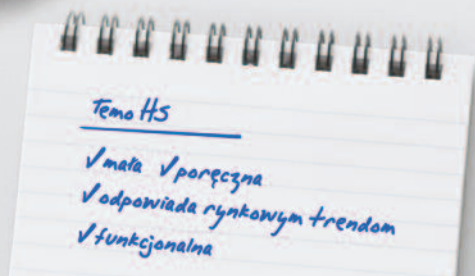 Temo HS
✓mała ✓poręczna
✓odpowiada rynkowym trendom
✓funkcjonalna